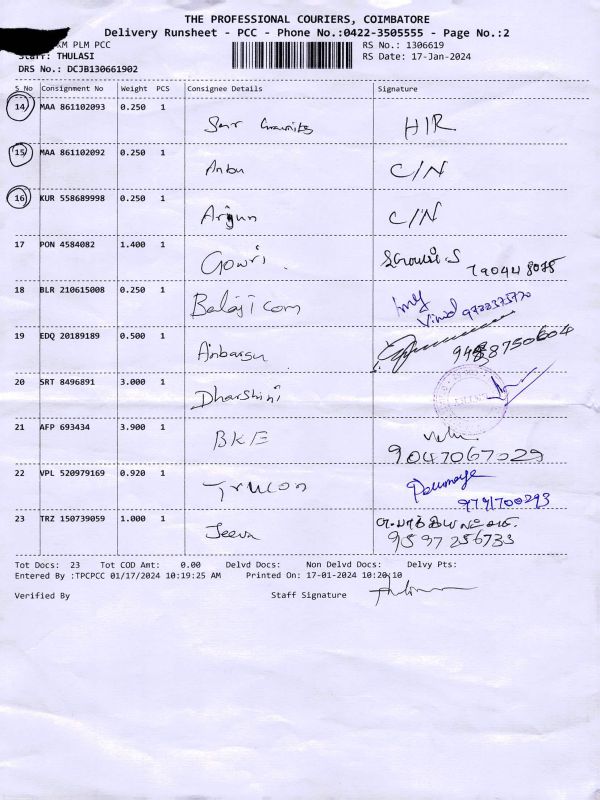 THE PROFESSIONAL COURIERS, COIMBATORE
Delivery Runsheet - PCC - Phone No.:0422-3505555 - Page No.:2
KM PLM PCC
RS No.: 1306619
Staff: THULASI
RS Date: 17-Jan-2024
DRS No.: DCJB130661902
S No Consignment No Weight PCS Consignee Details Signature
14 MAA 861102093 0.250 1 H/R
15 MAA 861102092 0.250 1 Anbu C/N
16 KUR 558689998 0.250 1 Arjun C/N
17 PON 4584082 1.400 1 Gowri
18 BLR 210615008 0.250 1 Balaji Com
Vinod
19 EDQ 20189189 0.500 1
20 SRT 8496891 3.000 1 Dharshini
21 AFP 693434 3.900 1 BKE
9047067029
22 VPL 520979169 0.920 1 Trucon
23 TRZ 150739059 1.000 1 Jeeva
9597256733
Tot Docs: 23 Tot COD Amt: 0.00 Delvd Docs: Non Delvd Docs: Delvy Pts:
Entered By :TPCPCC 01/17/2024 10:19:25 AM Printed On: 17-01-2024 10:20:10
Verified By Staff Signature